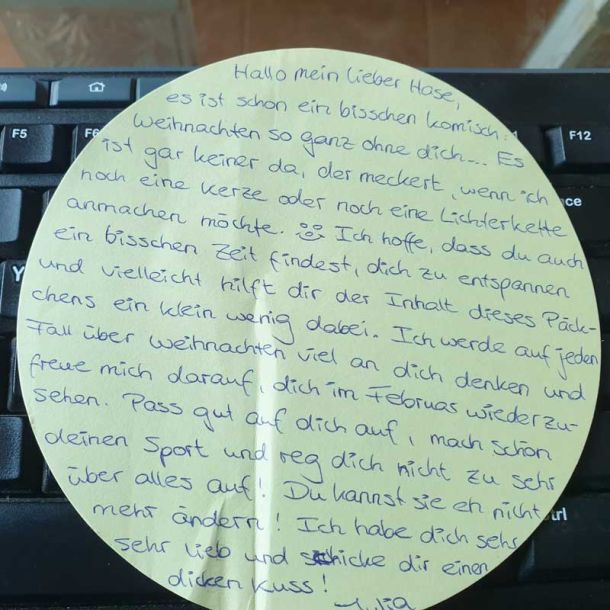 Hallo mein lieber Hase,
es ist schon ein bisschen komisch:
Weihnachten so ganz ohne dich... Es
ist gar keiner da, der meckert, wenn ich
noch eine Kerze oder noch eine Lichterkette
anmachen möchte. Ich hoffe, dass du auch
ein bisschen Zeit findest, dich zu entspannen
und vielleicht hilft dir der Inhalt dieses Päck-
chens ein klein wenig dabei. Ich werde auf jeden
Fall über Weihnachten viel an dich denken und
freue mich darauf, dich im Februar wiederzu-
sehen. Pass gut auf dich auf, mach schön
deinen Sport und reg dich nicht zu sehr
über alles auf! Du kannst sie eh nicht
mehr ändern! Ich habe dich sehr
sehr lieb und schicke dir einen
dicken Kuss!
Julia
F5
F6
F12
ce
Y
trl